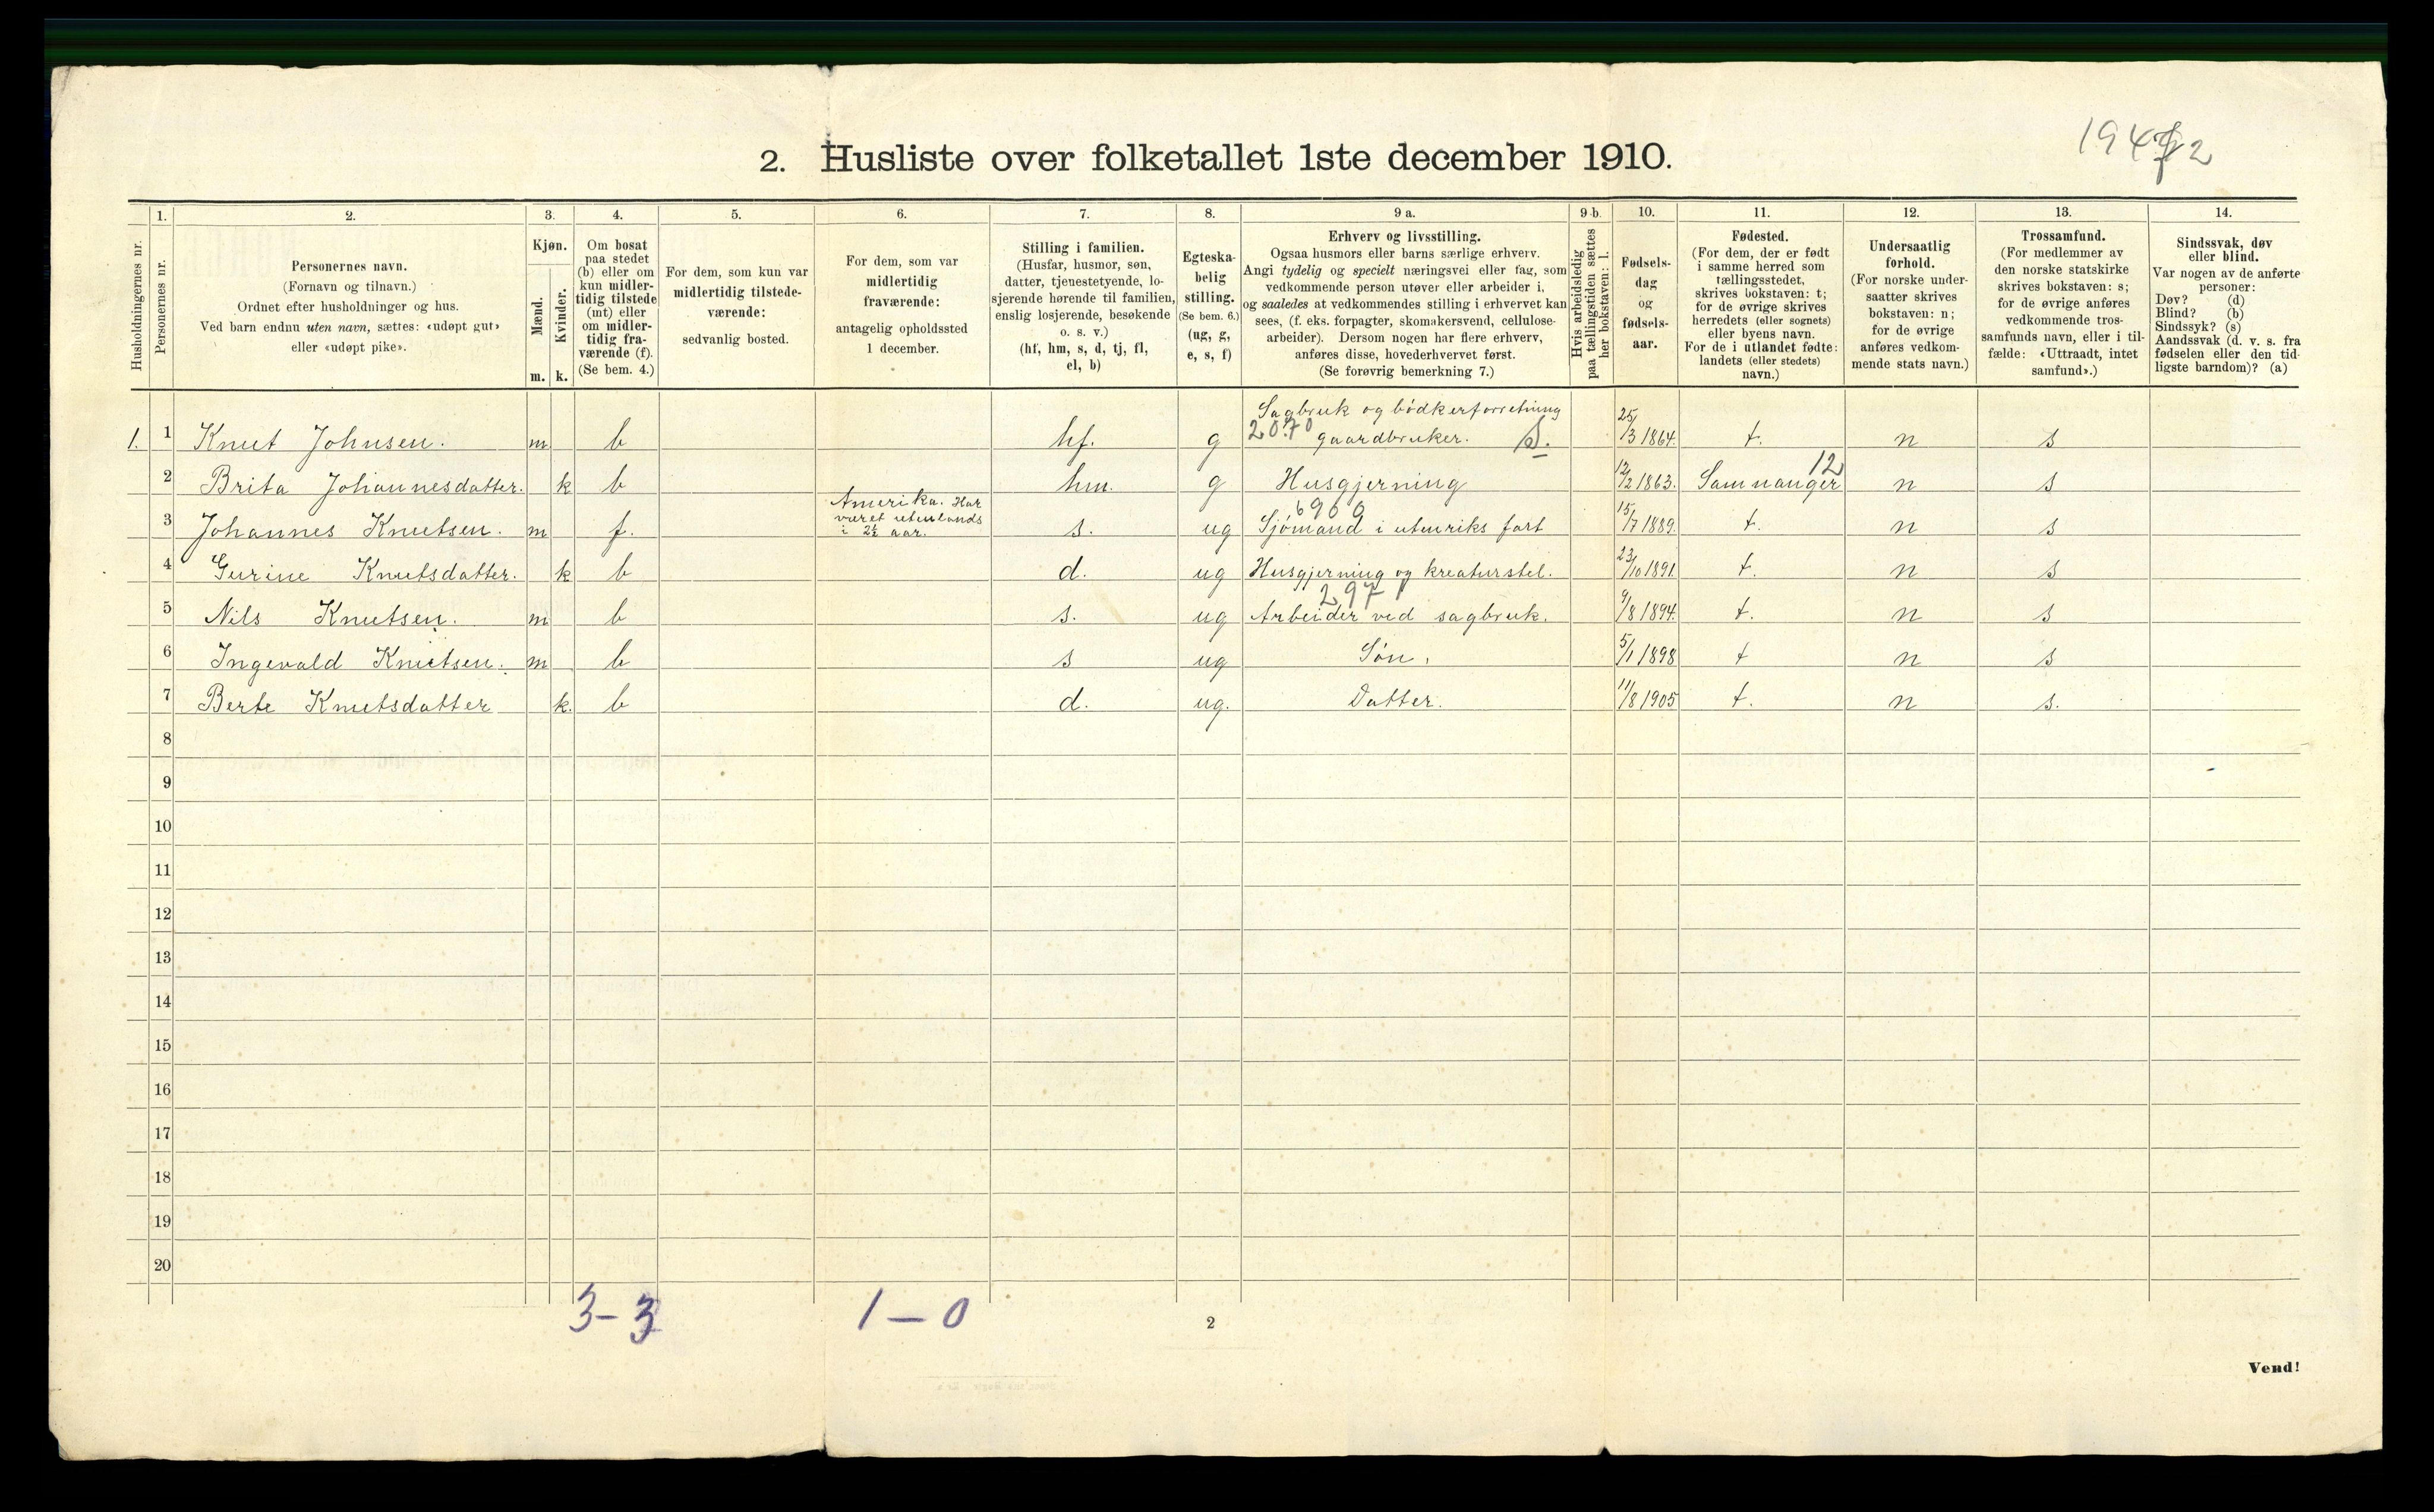 19472
2. Husliste over folketallet 1ste december 1910.
Husholdningernes nr.
1.
Personernes nr.
2.
Personernes navn.
(Fornavn og tilnavn.)
Ordnet efter husholdninger og hus.
Ved barn endnu uten navn, sættes: «udøpt gut»
eller «udøpt pike».
3.
Kjøn.
Mænd.
Kvinder.
m. k.
4.
Om bosat
paa stedet
(b) eller om
kun midler-
tidig tilstede
(mt) eller
om midler-
tidig fra-
værende (f).
(Se bem. 4.)
5.
For dem, som kun var
midlertidig tilstede-
værende:
sedvanlig bosted.
6.
For dem, som var
midlertidig
fraværende:
antagelig opholdssted
1 december.
7.
Stilling i familien.
(Husfar, husmor, søn,
datter, tjenestetyende, lo-
sjerende hørende til familien,
enslig losjerende, besøkende
o. s. v.)
(hf, hm, s, d, tj, fl,
el, b)
8.
Egteska-
belig
stilling.
(Se bem. 6.)
(ug, g,
e, s, f)
9 a.
Erhverv og livsstilling.
Ogsaa husmors eller barns særlige erhverv.
Angi tydelig og specielt næringsvei eller fag, som
vedkommende person utøver eller arbeider i,
og saaledes at vedkommendes stilling i erhvervet kan
sees, (f. eks. forpagter, skomakersvend, cellulose-
arbeider). Dersom nogen har flere erhverv,
anføres disse, hovederhvervet først.
(Se forøvrig bemerkning 7.)
9 b.
Hvis arbeidsledig
paa tællingstiden sættes
her bokstaven: l.
10.
Fødsels-
dag
og
fødsels-
aar.
11.
Fødested.
(For dem, der er født
i samme herred som
tællingsstedet,
skrives bokstaven: t;
for de øvrige skrives
herredets (eller sognets)
eller byens navn.
For de i utlandet fødte:
landets (eller stedets)
navn.)
12.
Undersaatlig
forhold.
(For norske under-
saatter skrives
bokstaven: n;
for de øvrige
anføres vedkom-
mende stats navn.)
13.
Trossamfund.
(For medlemmer av
den norske statskirke
skrives bokstaven: s;
for de øvrige anføres
vedkommende tros-
samfunds navn, eller i til-
fælde: «Uttraadt, intet
samfund».)
14.
Sindssvak, døv
eller blind.
Var nogen av de anførte
personer:
Døv? (d)
Blind? (b)
Sindssyk? (s)
Aandssvak (d. v. s. fra
fødselen eller den tid-
ligste barndom)? (a)
Sagbruk og bödkerforretning
1. 1 Knut Johnsen. m b hf. g 2070 gaardbruker. S. 25/3 1864. t. n s
2 Brita Johannesdatter. k b hm. g Husgjerning 12/2 1863. Samnanger 12 n s
3 Johannes Knutsen. m f. Amerika. Har været utenlands i 2½ aar. s. ug 6900 Sjömand i utenriks fart 15/7 1889. t. n s
4 Gurine Knutsdatter. k b d. ug Husgjerning og kreaturstel. 23/10 1891. t. n s
5 Nils Knutsen. m b s. ug 297 Arbeider ved sagbruk. 9/8 1894. t. n s
6 Ingevald Knutsen. m b s ug Sön. 5/1 1898 t n s
7 Berte Knutsdatter k. b d. ug. Datter. 11/8 1905 t. n s.
8
9
10
11
12
13
14
15
16
17
18
19
20
3-3 1-0
2
Vend!